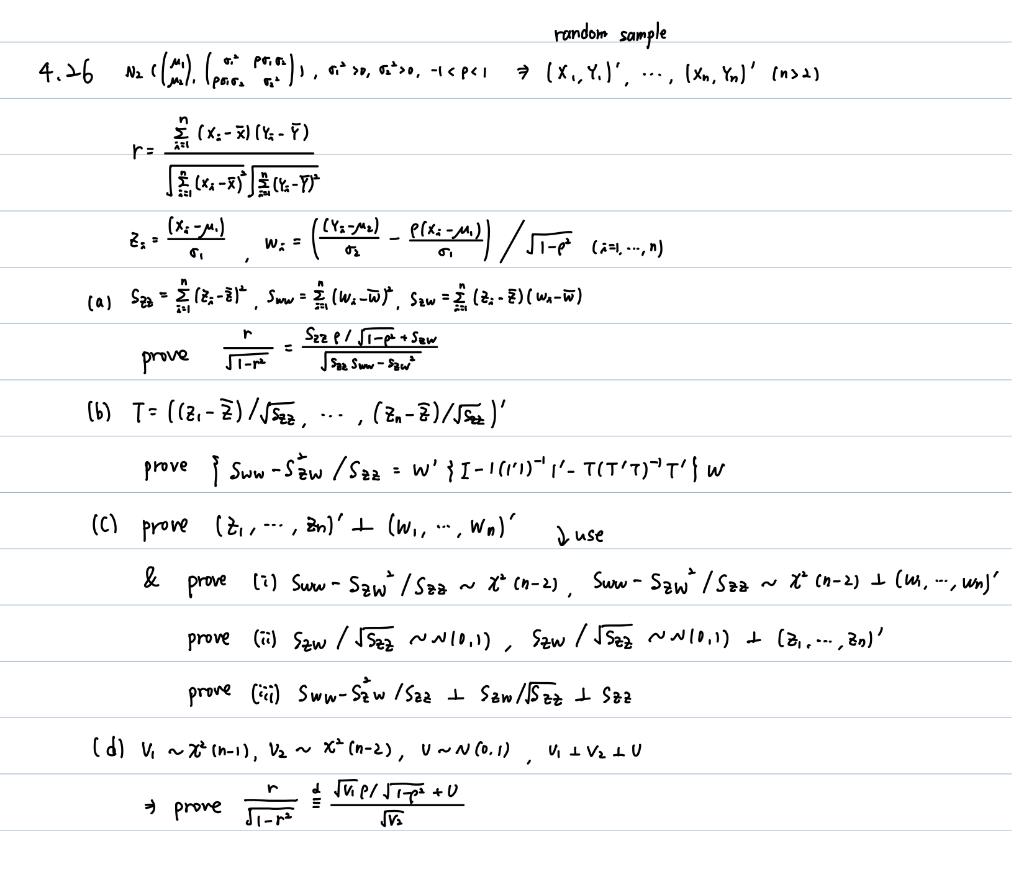 random sample
4.26 N₂ ( (μ₁ μ₂), (σ₁² ρσ₁σ₂ ρσ₁σ₂ σ₂²) ), σ₁² >0, σ₂² >0, -1 < ρ < 1 ⇒ (X₁, Y₁)', ⋯, (Xn, Yn)' (n>2)
r = Σᵢ₌₁ⁿ (Xᵢ - X̄)(Yᵢ - Ȳ) / √(Σᵢ₌₁ⁿ (Xᵢ - X̄)²) √(Σᵢ₌₁ⁿ (Yᵢ - Ȳ)²)
zᵢ = (Xᵢ - μ₁) / σ₁ , wᵢ = ( (Yᵢ - μ₂) / σ₂ - ρ(Xᵢ - μ₁) / σ₁ ) / √(1-ρ²) (i=1, ⋯, n)
(a) Szz = Σᵢ₌₁ⁿ (zᵢ - z̄)², Sww = Σᵢ₌₁ⁿ (wᵢ - w̄)², Szw = Σᵢ₌₁ⁿ (zᵢ - z̄)(wᵢ - w̄)
prove r / √(1-r²) = (Szz ρ / √(1-ρ²) + Szw) / √(Szz Sww - Szw²)
(b) T = ((z₁ - z̄)/√Szz, ⋯, (zn - z̄)/√Szz)'
prove { Sww - Szw² / Szz = W' { I - 1(1'1)⁻¹ 1' - T(T'T)⁻¹ T' } W
(c) prove (z₁, ⋯, zn)' ⊥ (w₁, ⋯, wn)' ↓ use
& prove (i) Sww - Szw² / Szz ~ χ²(n-2), Sww - Szw² / Szz ~ χ²(n-2) ⊥ (w₁, ⋯, wn)'
prove (ii) Szw / √Szz ~ N(0,1), Szw / √Szz ~ N(0,1) ⊥ (z₁, ⋯, zn)'
prove (iii) Sww - Szw² / Szz ⊥ Szw/√Szz ⊥ Szz
(d) V₁ ~ χ²(n-1), V₂ ~ χ²(n-2), U ~ N(0,1), V₁ ⊥ V₂ ⊥ U
⇒ prove r / √(1-r²) ≡ᵈ (√V₁ ρ/√(1-ρ²) + U) / √V₂